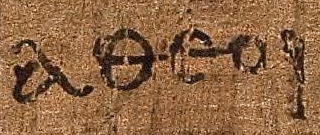 αθεοι